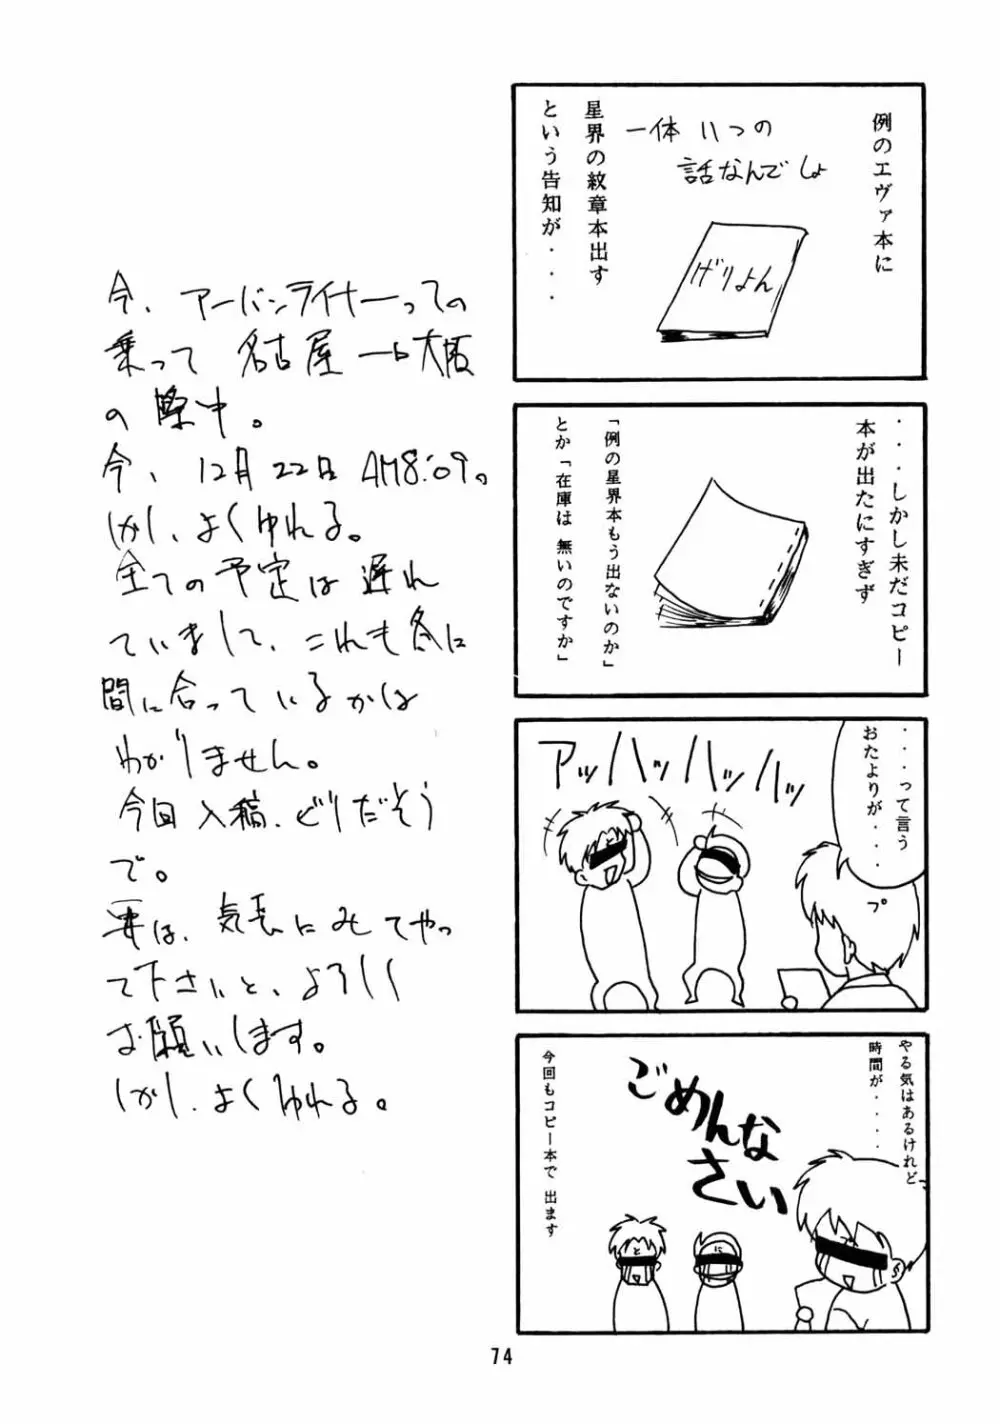 例のエヴァ本に
一体いつの
話なんでしょ
げりよん
星界の紋章本出す
という告知が・・・・
・・・しかし未だコピー
本が出たにすぎず
「例の星界本もう出ないのか」
とか「在庫は 無いのですか」
・・・って言う
おたよりが・・・・
プ
アッハッハッハッ
やる気はあるけれど
時間が・・・・
ごめんな
さい
と
に
プ
今回もコピー本で 出ます
今、アーバンライナーっての
乗って 名古屋→大阪
の際中。
今、12月22日 AM8:09。
しかし、よくゆれる。
全ての予定は遅れ
ていまして、これも冬に
間に合っているかは
わかりません。
今回入稿、どりだそう
で。
要は、気長にみてやっ
て下さいと、よろしく
お願いします。
しかし、よくゆれる。
74